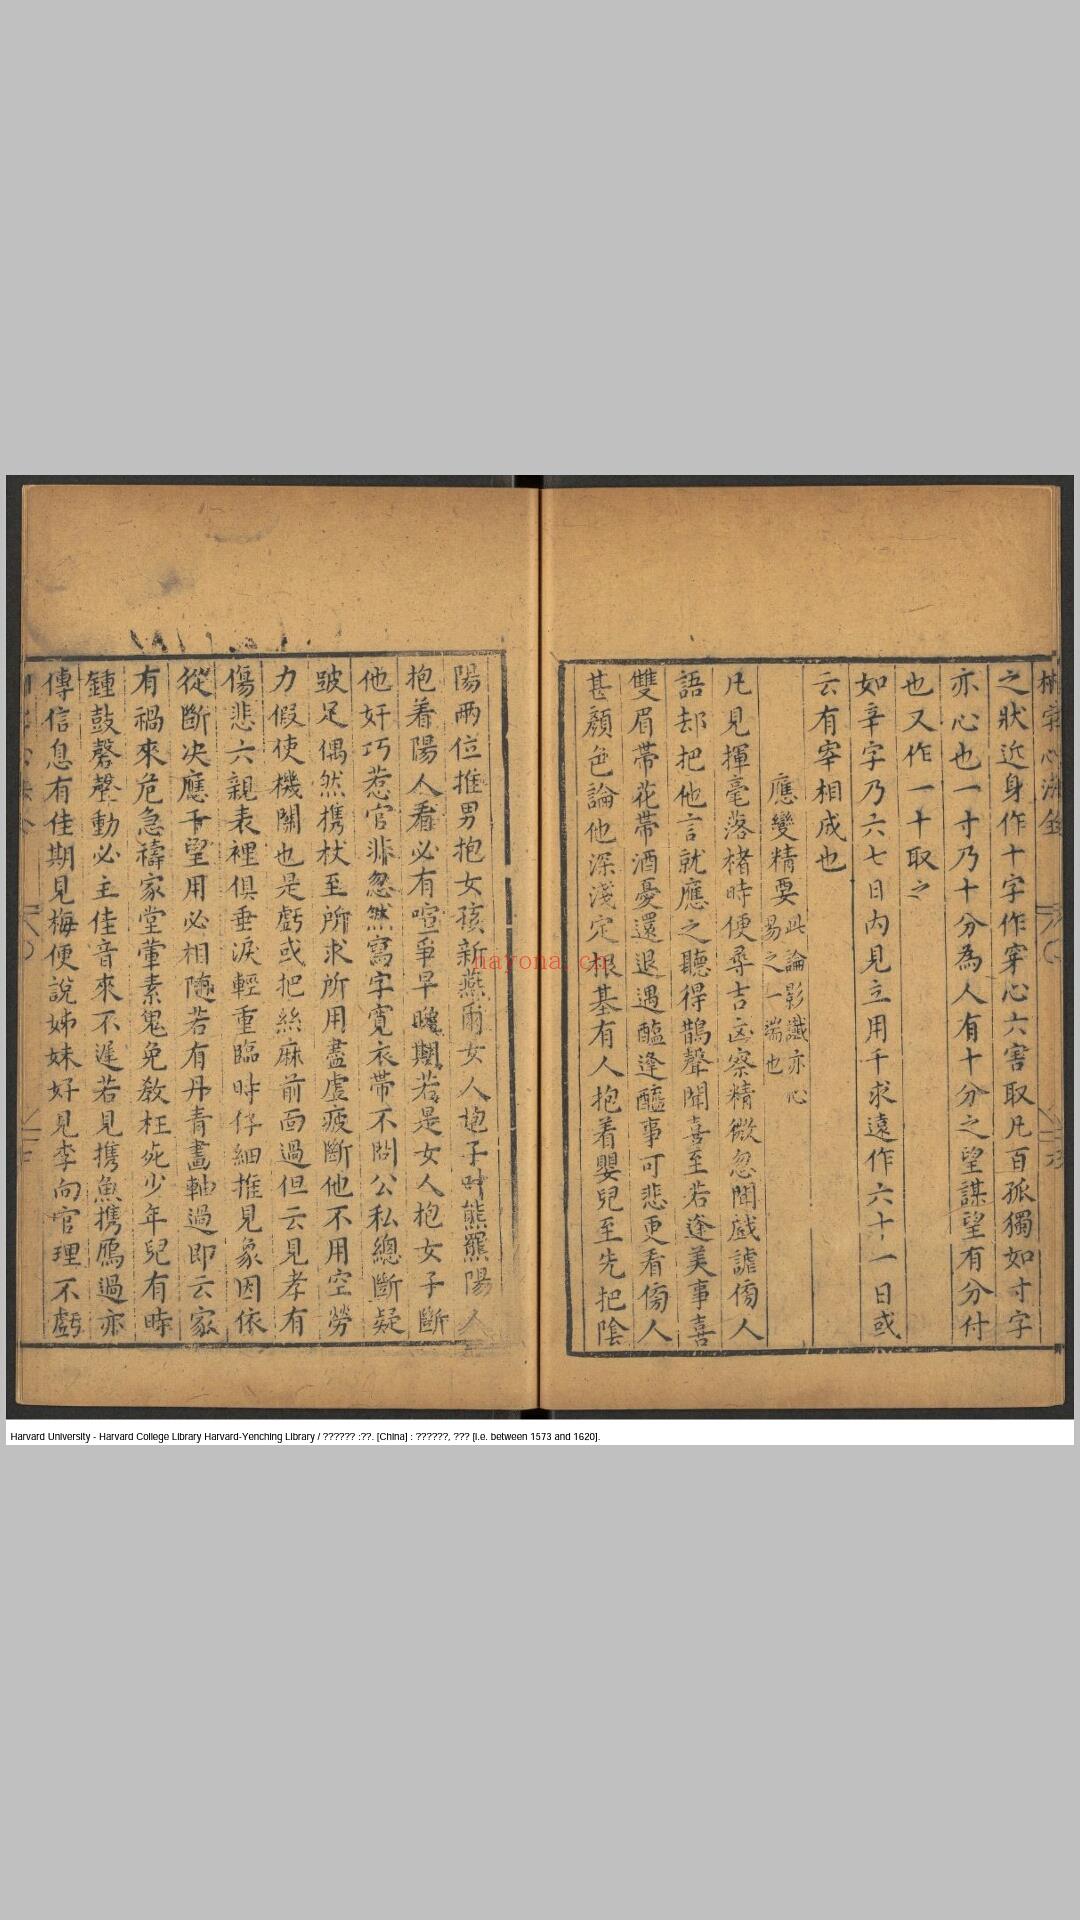 之狀近身作十字作穿心六害取凡百孤獨如寸字
亦心也一寸乃十分為人有十分之望謀望有分付
也又作一十取之
如辛字乃六七日內見立用千求遠作六十一日或
云有宰相成也
應變精要
此論影讖亦心
易之一端也
凡見揮毫落楮時便尋吉凶察精微忽聞戲謔傍人
語却把他言就應之聽得鵲聲聞喜至若逢美事喜
雙眉帶花帶酒憂還退遇醢逢醯事可悲更看傍人
甚顏色論他深淺定根基有人抱着嬰兒至先把陰
陽兩位推男抱女孩新燕爾女人抱子叶熊羆陽人
抱着陽人看必有喧爭早晚期若是女人抱女子斷
他奸巧惹官非忽然寫字寬衣帶不問公私總斷疑
跛足偶然携杖至所求所用盡虛疲斷他不用空勞
力假使機關也是虧或把絲麻前面過但云見孝有
傷悲六親表裡俱垂淚輕重臨時仔細推見象因依
從斷决應干望用必相隨若有丹青畫軸過即云家
有禍來危急禱家堂葷素鬼免教枉死少年兒有時
鍾鼓磬聲動必主佳音來不遲若見携魚携鴈過亦
傳信息有佳期見梅便說姊妹好見李向官理不虧
nayona.cn
Harvard University - Harvard College Library Harvard-Yenching Library / ?????? :??. [China] : ??????, ??? [i.e. between 1573 and 1620].